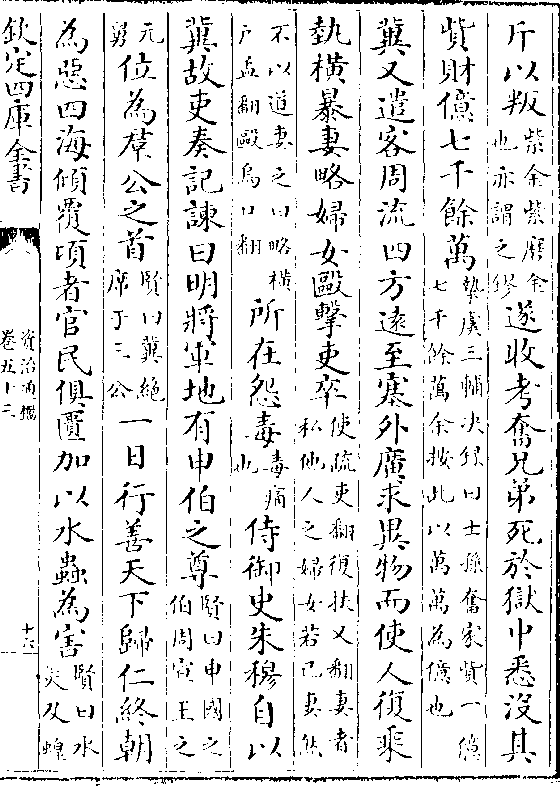 斤以叛紫金紫磨金也亦謂之鏐遂收考奮兄弟死於獄中悉沒其
貲財億七千餘萬摯虞三輔決録曰士孫奮家貲一億七千餘萬余按此以萬萬為億也
冀又遣客周流四方遠至塞外廣求異物而使人復乘
埶橫暴妻略婦女毆擊吏卒使疏吏翻復扶又翻妻者私他人之婦女若己妻然
不以道妻之曰略橫戶孟翻毆烏口翻所在怨毒毒痛也侍御史朱穆自以
冀故吏奏記諫曰明將軍地有申伯之尊賢曰申國之伯周宣王之
元舅位為羣公之首賢曰冀絶席于三公一日行善天下歸仁終朝
為惡四海傾覆頃者官民俱匱加以水蟲為害賢曰水災及蝗
欽定四庫全書
資治通鑑
卷五十三
十六